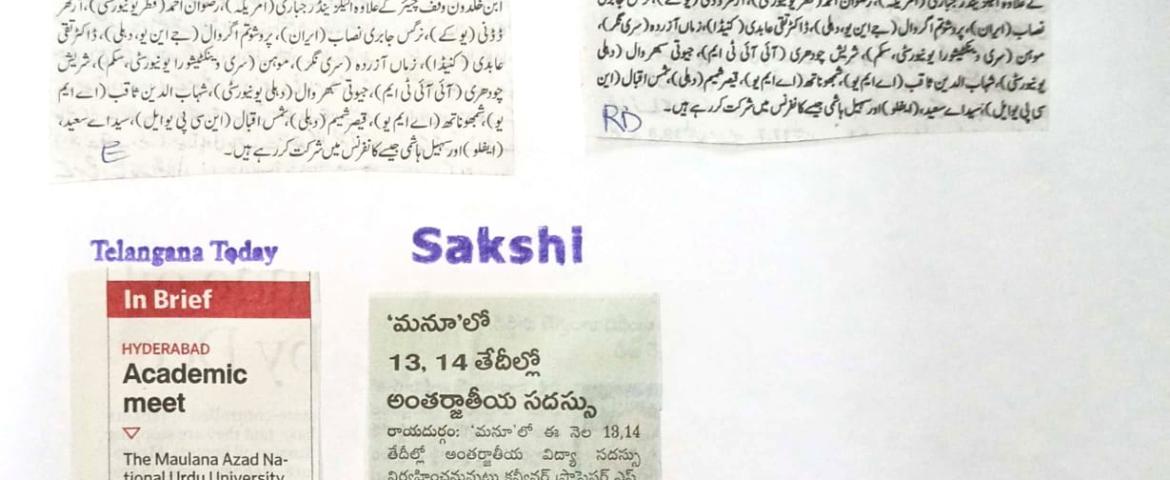 ابن خلدون وقف چیئر کے علاوہ الیگزینڈر جباری (امریکہ)، رضوان احمد (قطر یونیورسٹی)، آرتھر
ڈڈنی (یو کے)، نرگس جابری نصاب (ایران)، پرشوتم اگروال (جے این یو، دہلی)، ڈاکٹر تقی
عابدی (کنیڈا)، زماں آزردہ (سری نگر)، موہن (سری وینکٹیشورا یونیورسٹی، سکم)، شریش
چودھری (آئی آئی ٹی ایم)، جیوتی سبھروال (دہلی یونیورسٹی)، شہاب الدین ثاقب (اے ایم
یو)، شمبھوناتھ (اے ایم یو)، قیصر شمیم (دہلی)، شمس اقبال (این سی پی یو ایل)، سید اے سعید،
(ایفلو) اور سہیل ہاشمی جیسے کانفرنس میں شرکت کر رہے ہیں۔
E
نصاب (ایران)، پرشوتم اگروال (جے این یو، دہلی)، ڈاکٹر تقی عابدی (کنیڈا)، زماں آزردہ (سری نگر)،
موہن (سری وینکٹیشورا یونیورسٹی، سکم)، شریش چودھری (آئی آئی ٹی ایم)، جیوتی سبھروال (دہلی
یونیورسٹی)، شہاب الدین ثاقب (اے ایم یو)، شمبھوناتھ (اے ایم یو)، قیصر شمیم (دہلی)، شمس اقبال (این
سی پی یو ایل)، سید اے سعید، (ایفلو) اور سہیل ہاشمی جیسے کانفرنس میں شرکت کر رہے ہیں۔
RD
Telangana Today
In Brief
HYDERABAD
Academic
meet
The Maulana Azad Na-
tional Urdu University
Sakshi
‘మనూ’లో
13, 14 తేదీల్లో
అంతర్జాతీయ సదస్సు
రాయదుర్గం: ‘మనూ’లో ఈ నెల 13,14
తేదీల్లో అంతర్జాతీయ విద్యా సదస్సు